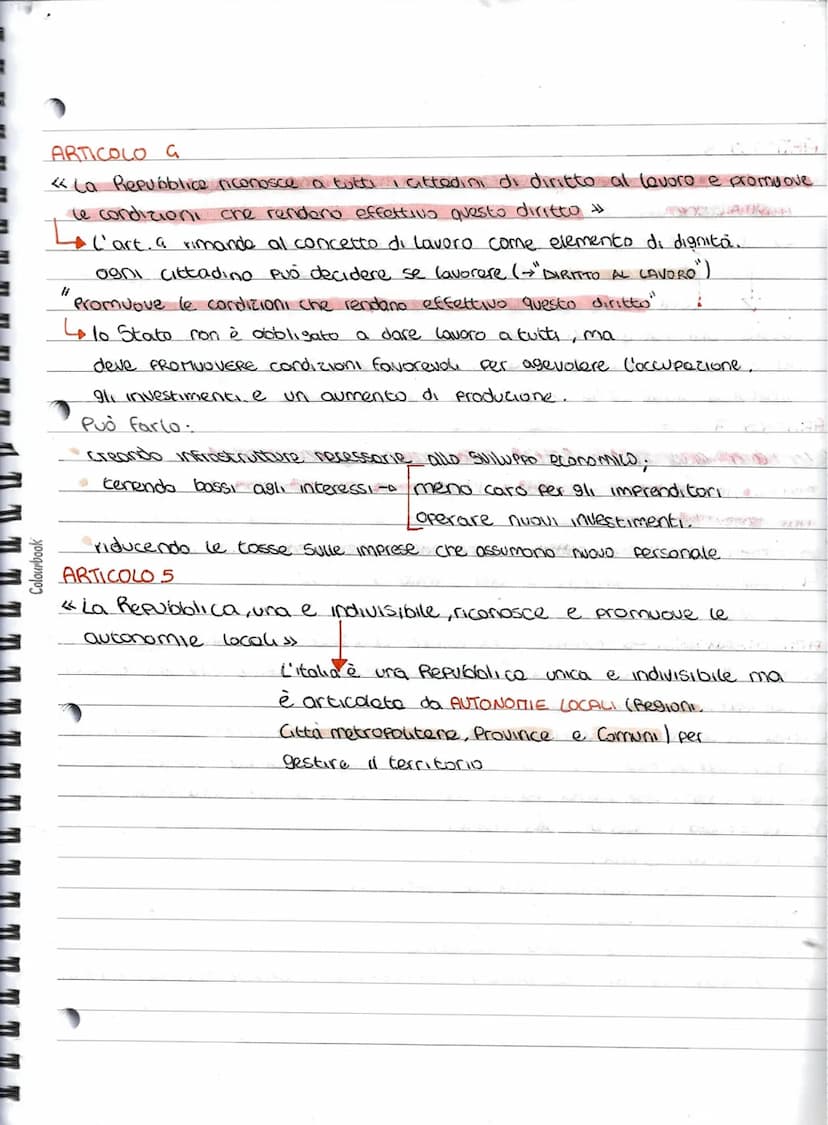 ARTICOLO 4
« La Repubblica riconosce a tutti i cittadini di diritto al lavoro e promuove
le condizioni che rendano effettivo questo diritto »
L'art. 4 rimanda al concetto di lavoro come elemento di dignità.
ogni cittadino può decidere se lavorare (→"DIRITTO AL LAVORO")
"Promuove le condizioni che rendano effettivo questo diritto"
lo Stato non è obbligato a dare lavoro a tutti, ma
deve PROMUOVERE condizioni favorevoli per agevolare l'occupazione,
gli investimenti e un aumento di produzione.
Può farlo:
• creando infrastrutture necessarie allo sviluppo economico;
• tenendo bassi agli interessi → meno caro per gli imprenditori
operare nuovi investimenti.
• riducendo le tasse sulle imprese che assumono nuovo personale
ARTICOLO 5
« La Repubblica, una e indivisibile, riconosce e promuove le
autonomie locali »
L'italia è una Repubblica unica e indivisibile ma
è articolata da AUTONOMIE LOCALI (Regioni,
Città metropolitane, Province e Comuni) per
gestire il territorio
Colourbook